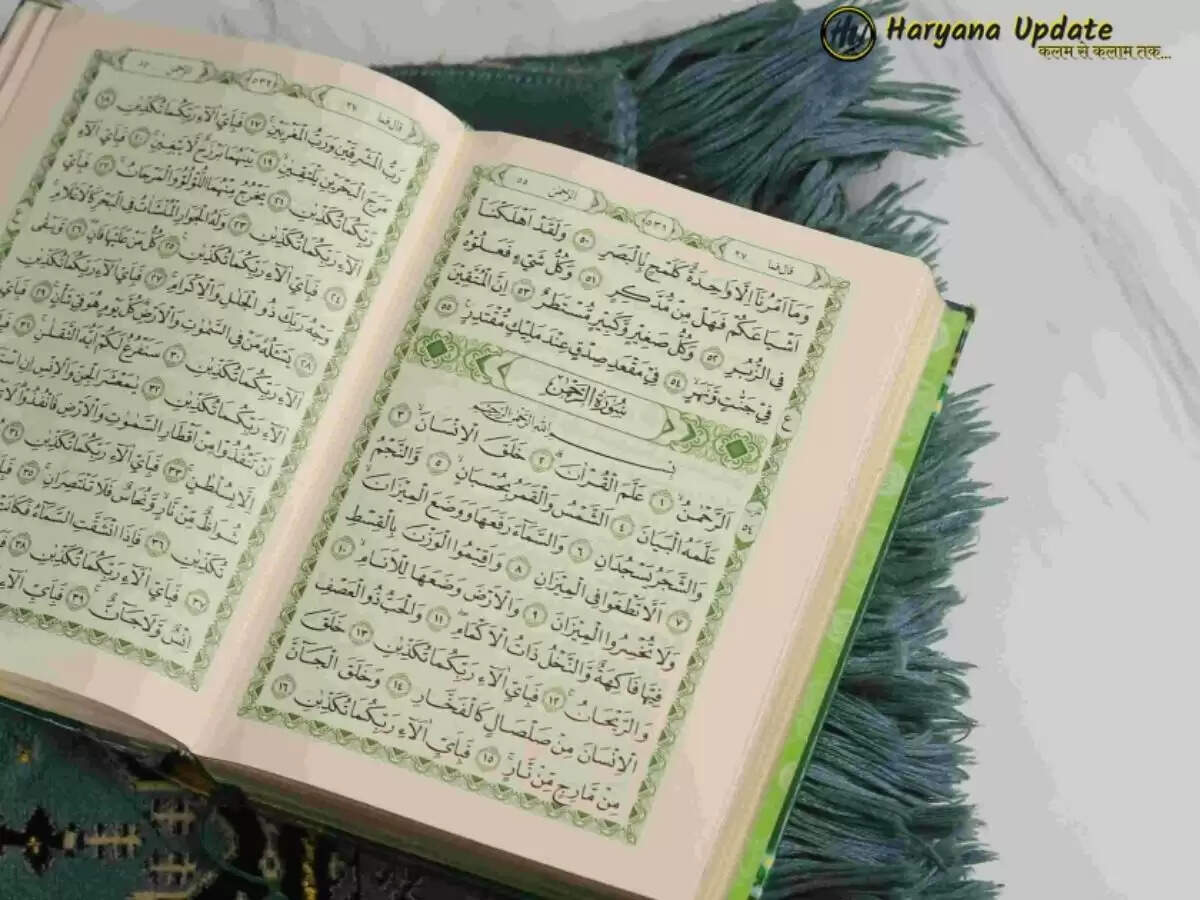 Haryana Update
कलम से कलाम तक...
قال فما ٢٧ ٥٣١ الرحمن ٥٥
وَمَآ اَمْرُنَآ اِلَّا وَاحِدَةٌ كَلَمْحٍ بِالْبَصَرِ ٥٠ وَلَقَدْ اَهْلَكْنَآ
اَشْيَاعَكُمْ فَهَلْ مِنْ مُّدَّكِرٍ ٥١ وَكُلُّ شَيْءٍ فَعَلُوْهُ
فِى الزُّبُرِ ٥٢ وَكُلُّ صَغِيْرٍ وَّكَبِيْرٍ مُّسْتَطَرٌ ٥٣ اِنَّ الْمُتَّقِيْنَ
فِيْ جَنّٰتٍ وَّنَهَرٍ ٥٤ فِيْ مَقْعَدِ صِدْقٍ عِنْدَ مَلِيْكٍ مُّقْتَدِرٍ ٥٥
سُوْرَةُ الرَّحْمٰنِ
بِسْمِ اللهِ الرَّحْمٰنِ الرَّحِيْمِ
اَلرَّحْمٰنُ ١ عَلَّمَ الْقُرْاٰنَ ٢ خَلَقَ الْاِنْسَانَ ٣
عَلَّمَهُ الْبَيَانَ ٤ اَلشَّمْسُ وَالْقَمَرُ بِحُسْبَانٍ ٥ وَّالنَّجْمُ
وَالشَّجَرُ يَسْجُدَانِ ٦ وَالسَّمَآءَ رَفَعَهَا وَوَضَعَ الْمِيْزَانَ
٧ اَلَّا تَطْغَوْا فِى الْمِيْزَانِ ٨ وَاَقِيْمُوا الْوَزْنَ بِالْقِسْطِ
وَلَا تُخْسِرُوا الْمِيْزَانَ ٩ وَالْاَرْضَ وَضَعَهَا لِلْاَنَامِ ١٠
فِيْهَا فَاكِهَةٌ وَّالنَّخْلُ ذَاتُ الْاَكْمَامِ ١١ وَالْحَبُّ ذُو الْعَصْفِ
وَالرَّيْحَانُ ١٢ فَبِاَيِّ اٰلَآءِ رَبِّكُمَا تُكَذِّبٰنِ ١٣ خَلَقَ
الْاِنْسَانَ مِنْ صَلْصَالٍ كَالْفَخَّارِ ١٤ وَخَلَقَ الْجَآنَّ
مِنْ مَّارِجٍ مِّنْ نَّارٍ ١٥ فَبِاَيِّ اٰلَآءِ رَبِّكُمَا تُكَذِّبٰنِ ١٦
قال فما ٢٧ ٥٣٢ الرحمن ٥٥
رَبُّ الْمَشْرِقَيْنِ وَرَبُّ الْمَغْرِبَيْنِ ١٧ فَبِاَيِّ اٰلَآءِ رَبِّكُمَا تُكَذِّبٰنِ ١٨
مَرَجَ الْبَحْرَيْنِ يَلْتَقِيٰنِ ١٩ بَيْنَهُمَا بَرْزَخٌ لَّا يَبْغِيٰنِ ٢٠ فَبِاَيِّ اٰلَآءِ
رَبِّكُمَا تُكَذِّبٰنِ ٢١ يَخْرُجُ مِنْهُمَا اللُّؤْلُؤُ وَالْمَرْجَانُ ٢٢ فَبِاَيِّ
اٰلَآءِ رَبِّكُمَا تُكَذِّبٰنِ ٢٣ وَلَهُ الْجَوَارِ الْمُنْشَاٰتُ فِى الْبَحْرِ كَالْاَعْلَامِ
٢٤ فَبِاَيِّ اٰلَآءِ رَبِّكُمَا تُكَذِّبٰنِ ٢٥ كُلُّ مَنْ عَلَيْهَا فَانٍ ٢٦ وَّيَبْقٰى
وَجْهُ رَبِّكَ ذُو الْجَلٰلِ وَالْاِكْرَامِ ٢٧ فَبِاَيِّ اٰلَآءِ رَبِّكُمَا تُكَذِّبٰنِ
٢٨ يَسْـَٔلُهٗ مَنْ فِى السَّمٰوٰتِ وَالْاَرْضِ كُلَّ يَوْمٍ هُوَ فِيْ شَاْنٍ ٢٩ فَبِاَيِّ
اٰلَآءِ رَبِّكُمَا تُكَذِّبٰنِ ٣٠ سَنَفْرُغُ لَكُمْ اَيُّهَ الثَّقَلٰنِ ٣١
اٰلَآءِ رَبِّكُمَا تُكَذِّبٰنِ ٣٢ يٰمَعْشَرَ الْجِنِّ وَالْاِنْسِ اِنِ
اَنْ تَنْفُذُوْا مِنْ اَقْطَارِ السَّمٰوٰتِ وَالْاَرْضِ فَانْفُذُوْا لَا
اِلَّا بِسُلْطٰنٍ ٣٣ فَبِاَيِّ اٰلَآءِ رَبِّكُمَا تُكَذِّبٰنِ ٣٤
شُوَاظٌ مِّنْ نَّارٍ وَّنُحَاسٌ فَلَا تَنْتَصِرٰنِ ٣٥
تُكَذِّبٰنِ ٣٦ فَاِذَا انْشَقَّتِ السَّمَآءُ فَكَانَتْ
٣٧ فَبِاَيِّ اٰلَآءِ رَبِّكُمَا تُكَذِّبٰنِ ٣٨
اِنْسٌ وَّلَا جَآنٌّ ٣٩ فَبِاَيِّ اٰلَآءِ